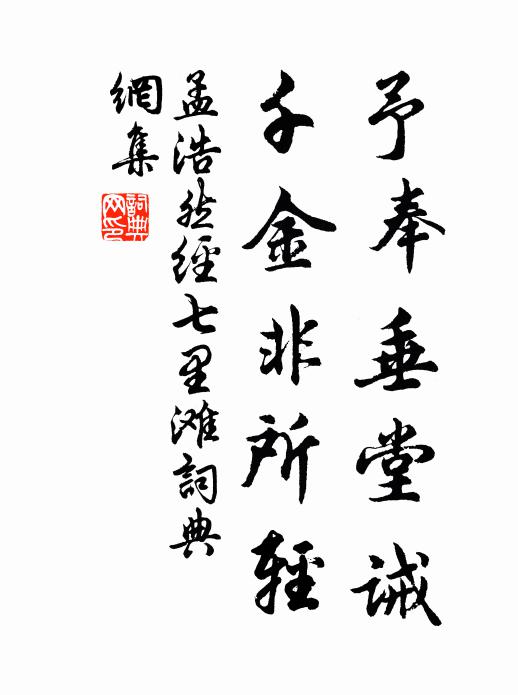 予奉垂堂诫
千金非所輕
孟浩然經七里滩詞典
網集
詞典
网印